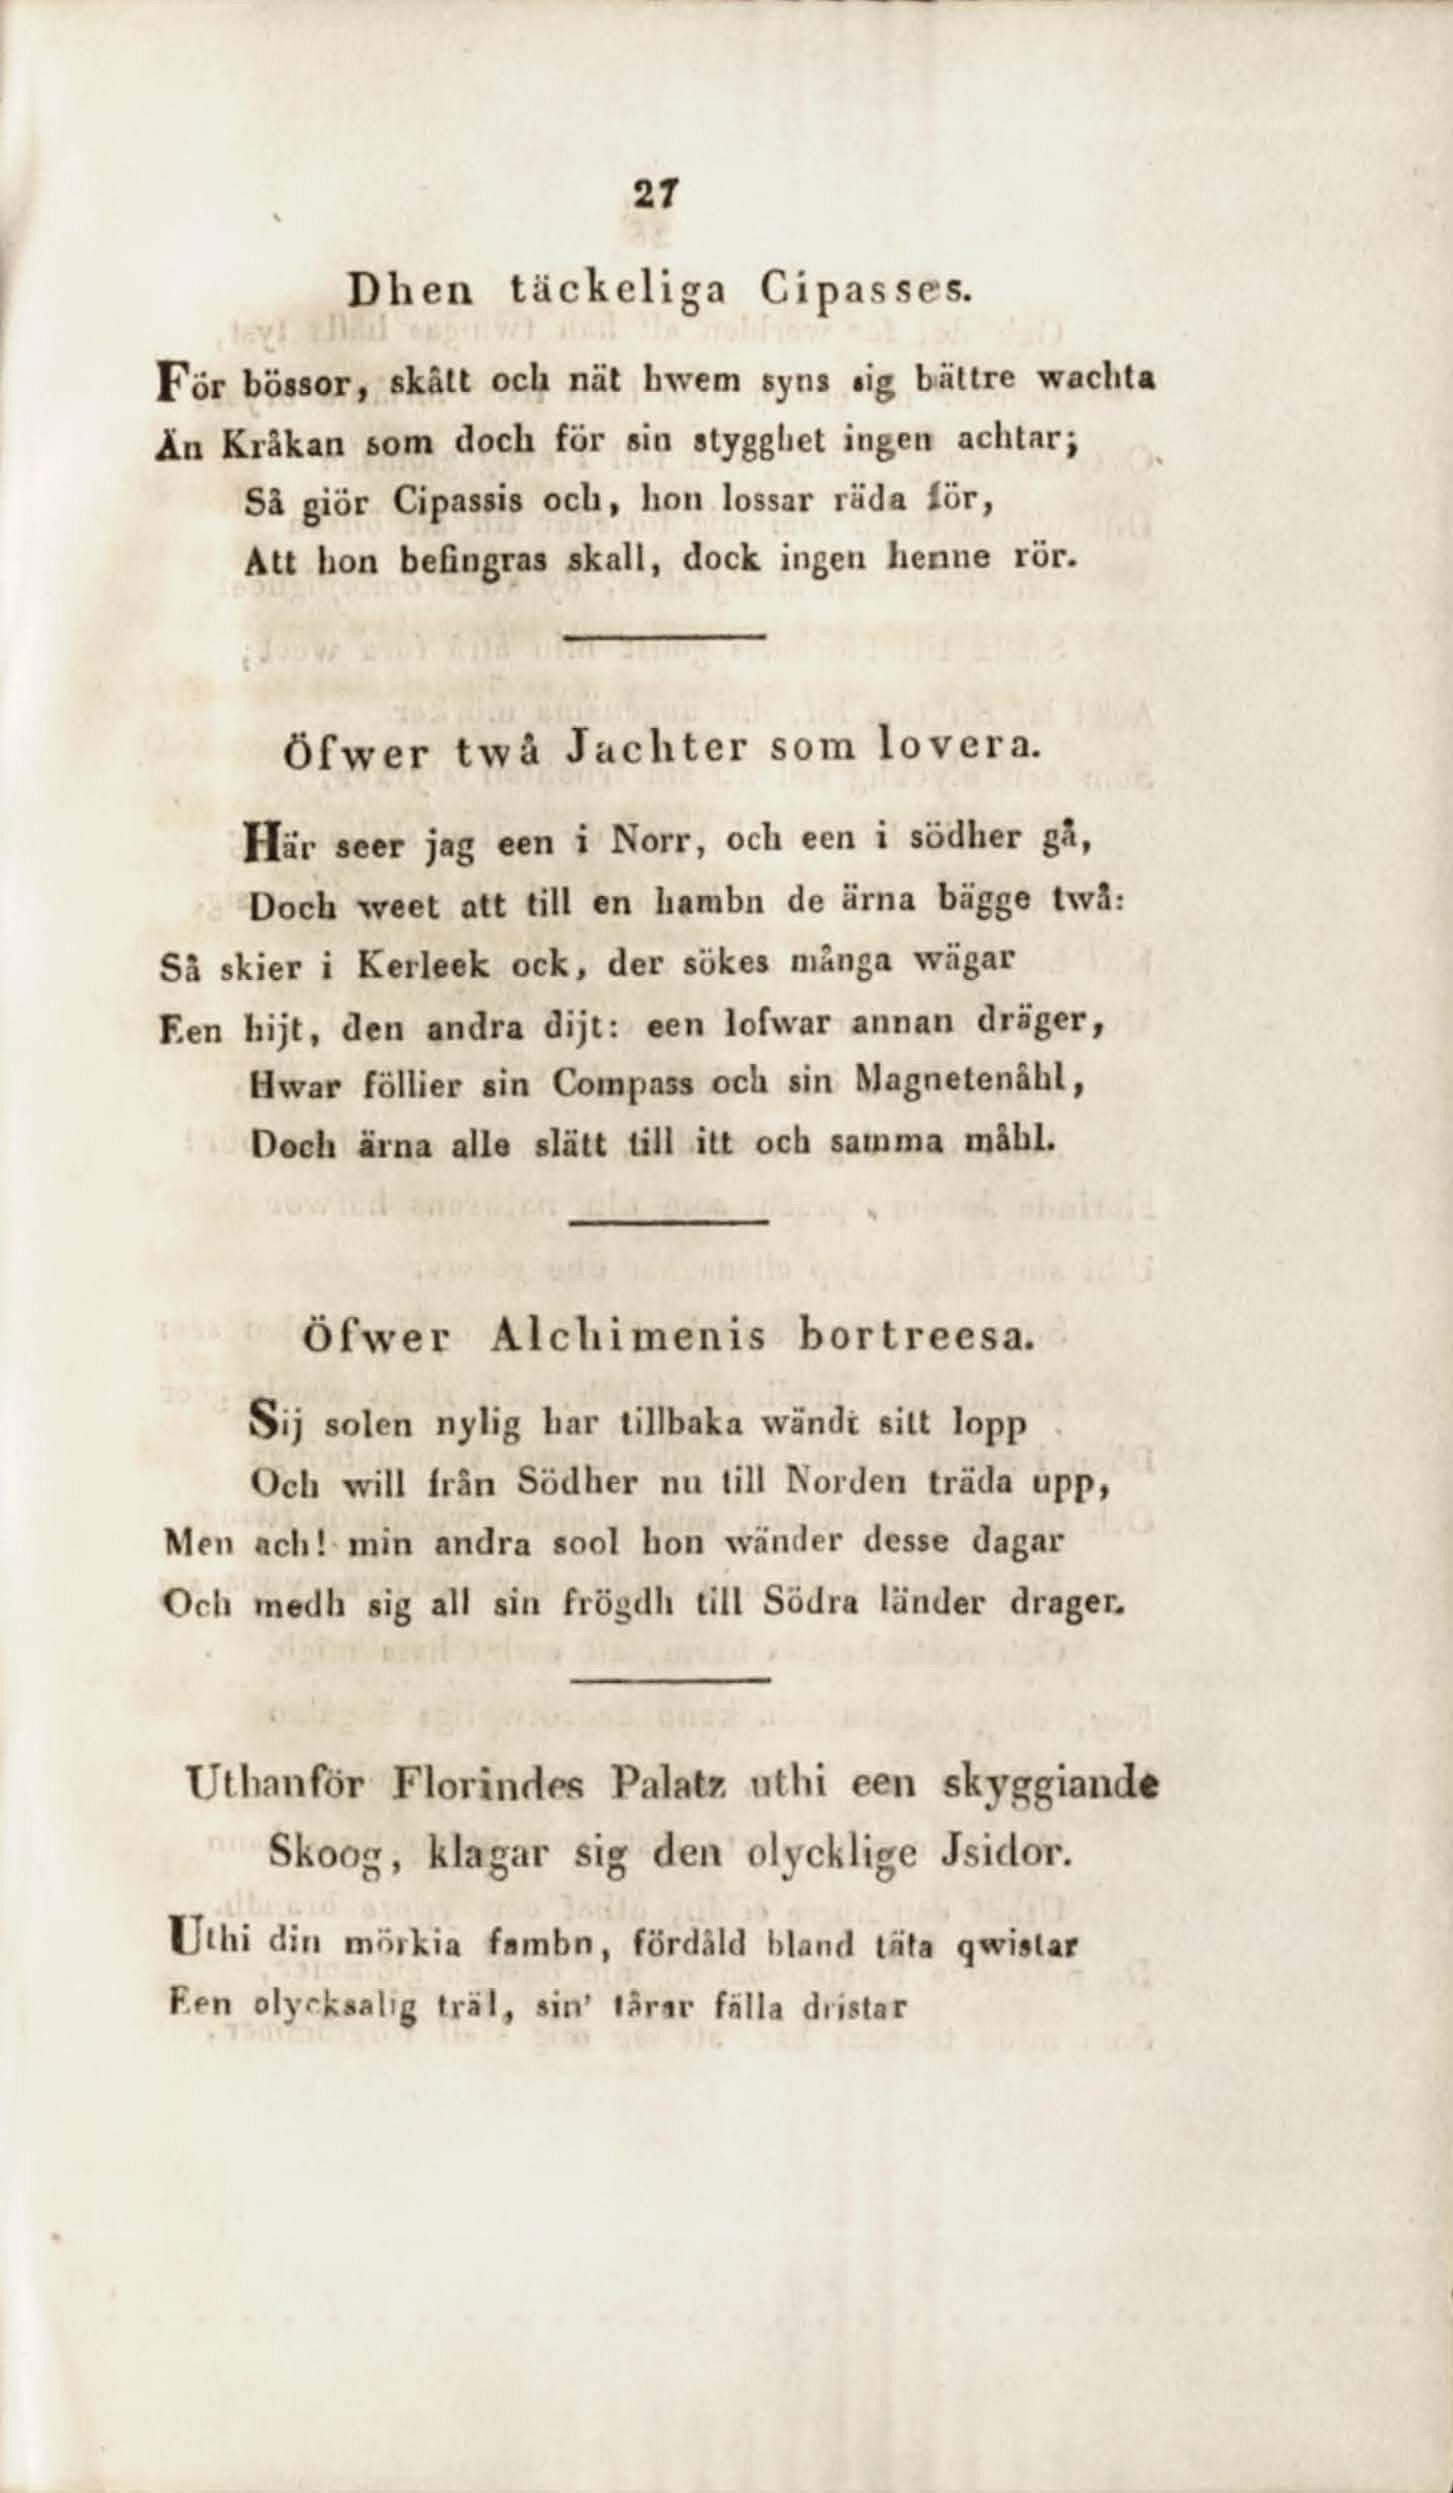 27
Dhen täckeliga Cipasses.
För bössor, skått och nät hwem syns sig bättre wachta
Än Kråkan som doch för sin stygghet ingen achtar;
Så giör Cipassis och, hon lossar räda för,
Att hon befingras skall, dock ingen henne rör.
Öfwer twå Jachter som lovera.
Här seer jag een i Norr, och een i södher gå,
Doch weet att till en hambn de ärna bägge twå:
Så skier i Kerleek ock, der sökes många wägar
Een hijt, den andra dijt: een lofwar annan dräger,
Hwar föllier sin Compass och sin Magnetenåhl,
Doch ärna alle slätt till itt och samma måhl.
Öfwer Alchimenis bortreesa.
Sij solen nylig har tillbaka wändt sitt lopp
Och will från Södher nu till Norden träda upp,
Men ach! min andra sool hon wänder desse dagar
Och medh sig all sin frögdh till Södra länder drager.
Uthanför Florindes Palatz uthi een skyggiande
Skoog, klagar sig den olycklige Jsidor.
Uthi din mörkia fambn, fördåld bland täta qwistar
Een olycksalig träl, sin' tårar fälla dristar